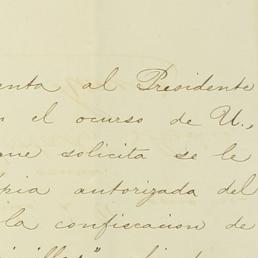 enta al Presidente
el ocurso de U.,
ue solicita se le
pia autorizada del
la confiscacion de